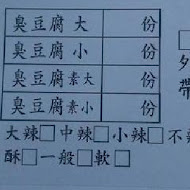 臭豆腐 大 份
臭豆腐 小 份
臭豆腐素大 份
臭豆腐素小 份
外
帶
大辣□中辣□小辣□不
酥□一般□軟□